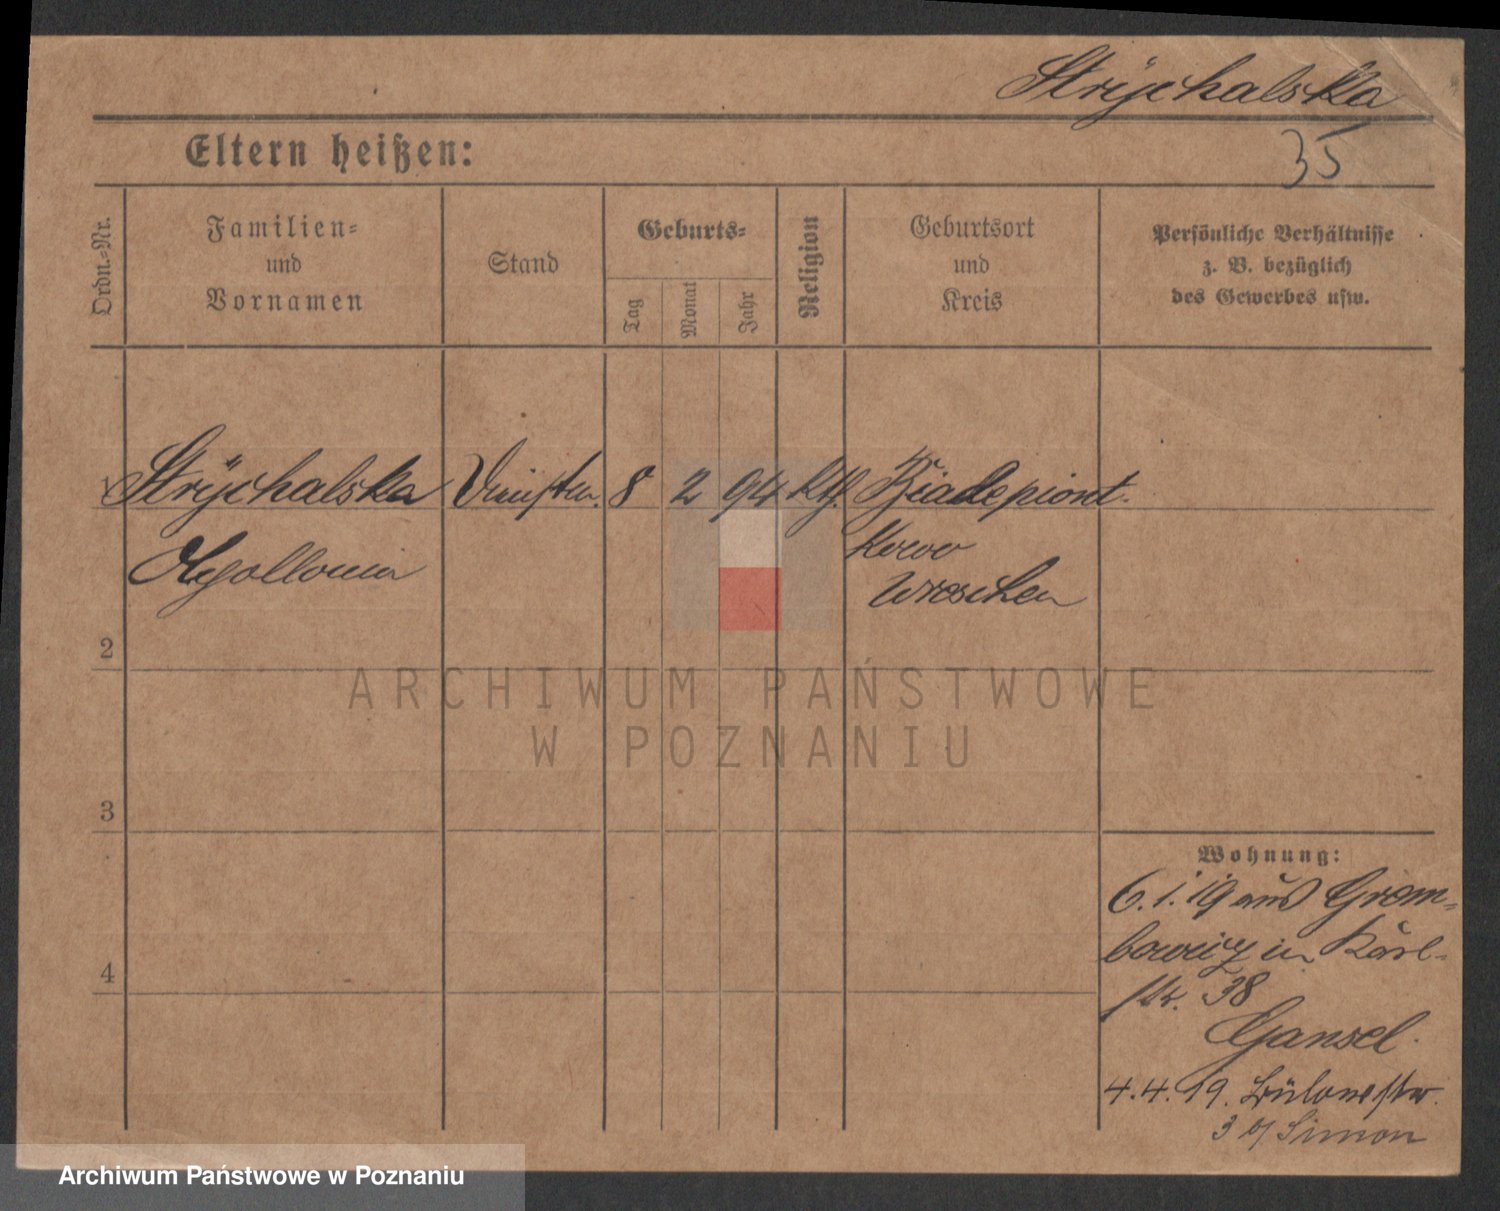 Strÿchalska
35
Eltern heißen:
Ordn.-Nr.
Familien-
und
Vornamen
Stand
Geburts-
Tag
Monat
Jahr
Religion
Geburtsort
und
Kreis
Persönliche Verhältnisse
z. B. bezüglich
des Gewerbes usw.
1 Strÿchalska 8 2 94 kth.
Wreschen
2
3
4
Wohnung:
6.1.19 aus Grom-
in Karl-
str. 38
Gansel.
4.4.19. Bülowstr.
3 b/ Simon
ARCHIWUM PAŃSTWOWE
W POZNANIU
Archiwum Państwowe w Poznaniu